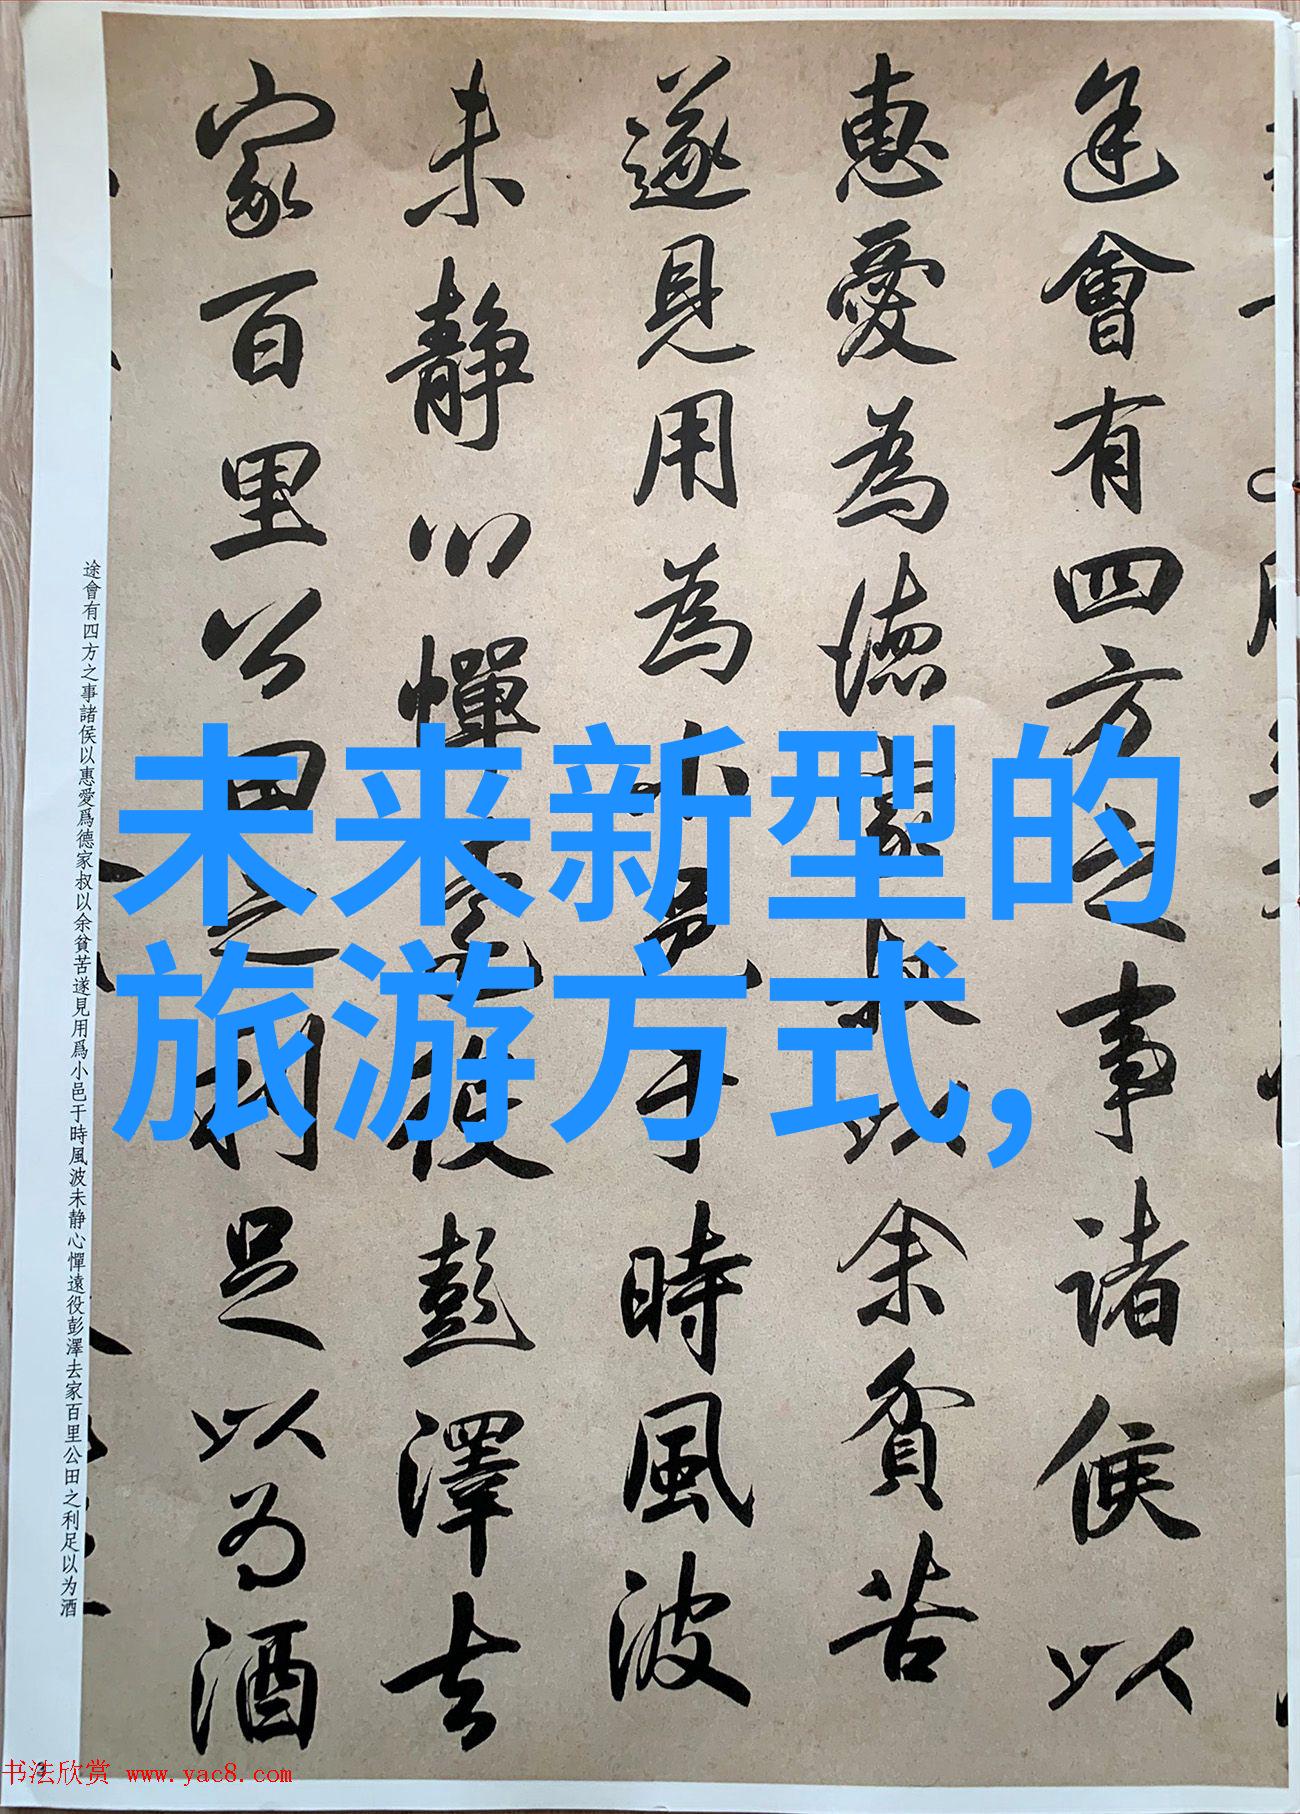 途會有四方之事諸侯以
惠愛為德家叔以余貧苦
遂見用為小邑于時風波
未靜心憚遠役彭澤去
家百里公田之利足以為酒
途會有四方之事諸侯以惠愛爲德家叔以余貧苦遂見用爲小邑于時風波未静心憚遠役彭澤去家百里公田之利足以为酒
未来新型的
旅游方式,
3
书法欣赏 www.yac8.com